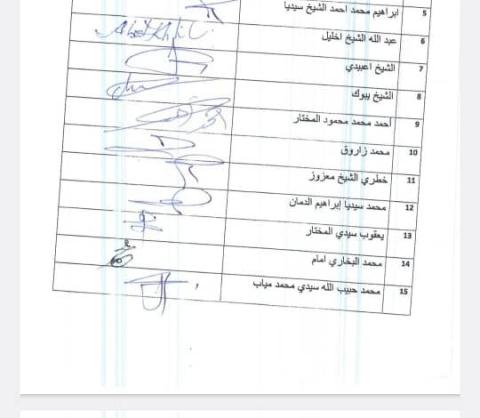 5 ابراهيم محمد احمد الشيخ سيديا
6 عبد الله الشيخ اخليل
7 الشيخ اعبيدي
8 الشيخ يبوك
9 أحمد محمد محمود المختار
10 محمد زاروق
11 خطري الشيخ معزوز
12 محمد سيديا إبراهيم الدمان
13 يعقوب سيدي المختار
14 محمد البخاري امام
15 محمد حبيب الله سيدي محمد مياب